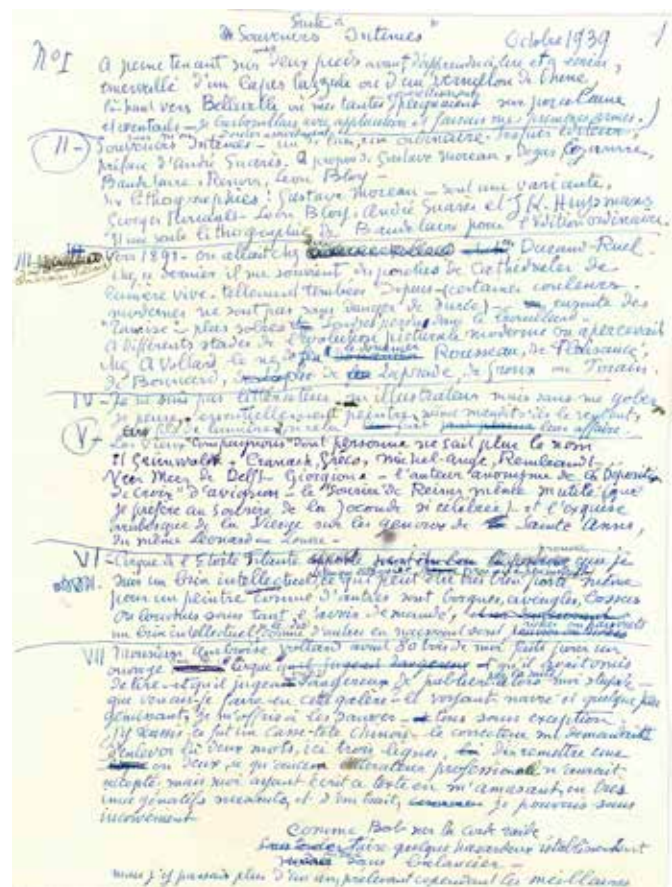 Suite à
"Souvenirs Intimes"
Octobre 1939
1
N° I
à peine tenant sur deux pieds avant d'apprendre à lire et à écrire,
émerveillé d'un lapis lazzule ou d'un vermillon de Chine,
là haut vers Belleville où mes tantes peignaient sur porcelaine
et éventails - je barbouillais avec application et faisais mes premières armes.
II -
Souvenirs Intimes - un de luxe, un ordinaire. Frapier éditeur,
préface d'André Suarès. à propos de Gustave Moreau, Degas, Cézanne,
Baudelaire, Renoir, Léon Bloy -
Six lithographies : Gustave Moreau - dont une variante,
Georges Rouault - Léon Bloy, André Suarès et J.K. Huysmans
et une seule lithographie de Baudelaire pour l'édition ordinaire.
III
Vers 1891 - on allait chez Durand-Ruel
chez ce dernier il me souvient des porches de Cathédrales de
lumière vive - tellement ternies depuis (certaines couleurs
modernes ne sont pas sans danger de durée) - ensuite des
"Tamise" - plus sobres
à différents stades de l'évolution picturale moderne on apercevait
chez A Vollard, le nègre Rousseau, de Plaisance,
de Bonnard, de Laprade, de Groux ou Forain.
IV - Je ne suis pas littérateur - ni illustrateur mais sans me gober
je pense essentiellement peintre, même maudit s'ils le veulent,
fils de lumière leur affaire.
V -
Les vieux "Compagnons" dont personne ne sait plus le nom
et Grünwald - Cranach, Gréco, Michel-Ange, Rembrandt -
Veer Meer de Delft Giorgione - l'auteur anonyme de la Déposition
de Croix" d'Avignon - le Sourire de Reims même mutilé (que
je préfère au sourire de la Joconde si célèbre) - et l'exquise
arabesque de la Vierge sur les genoux de Sainte Anne,
du même Léonard au Louvre -
VI - Cirque de l'Etoile Filante que je
suis un brin intellectuel, ce qui peut être très bien porté même
pour un peintre comme d'autres sont borgnes, aveugles,
un brin intellectuel comme d'autres
VII
Monsieur Ambroise Vollard avant
ouvrage cirque qu'il avait omis
de lire - et qu'il jugea dangereux de publier
que venais-je faire en cette galère - et voyant navré et quelque peu
gémissant, je m'offris à les sauver - tous sans exception
ce fut un casse-tête chinois - le correcteur me demandait
d'enlever là deux mots, ici trois lignes, d'en remettre une
ou deux, ce qu'aucun littérateur professionnel n'aurait
accepté, mais moi ayant écrit ce texte en m'amusant,
je pouvais sans
inconvénient
comme Bob sur la corde raide
faire quelque hasardeux rétablissement
sans balancier -
mais j'y passais plus d'un an, prélevant cependant les meilleures